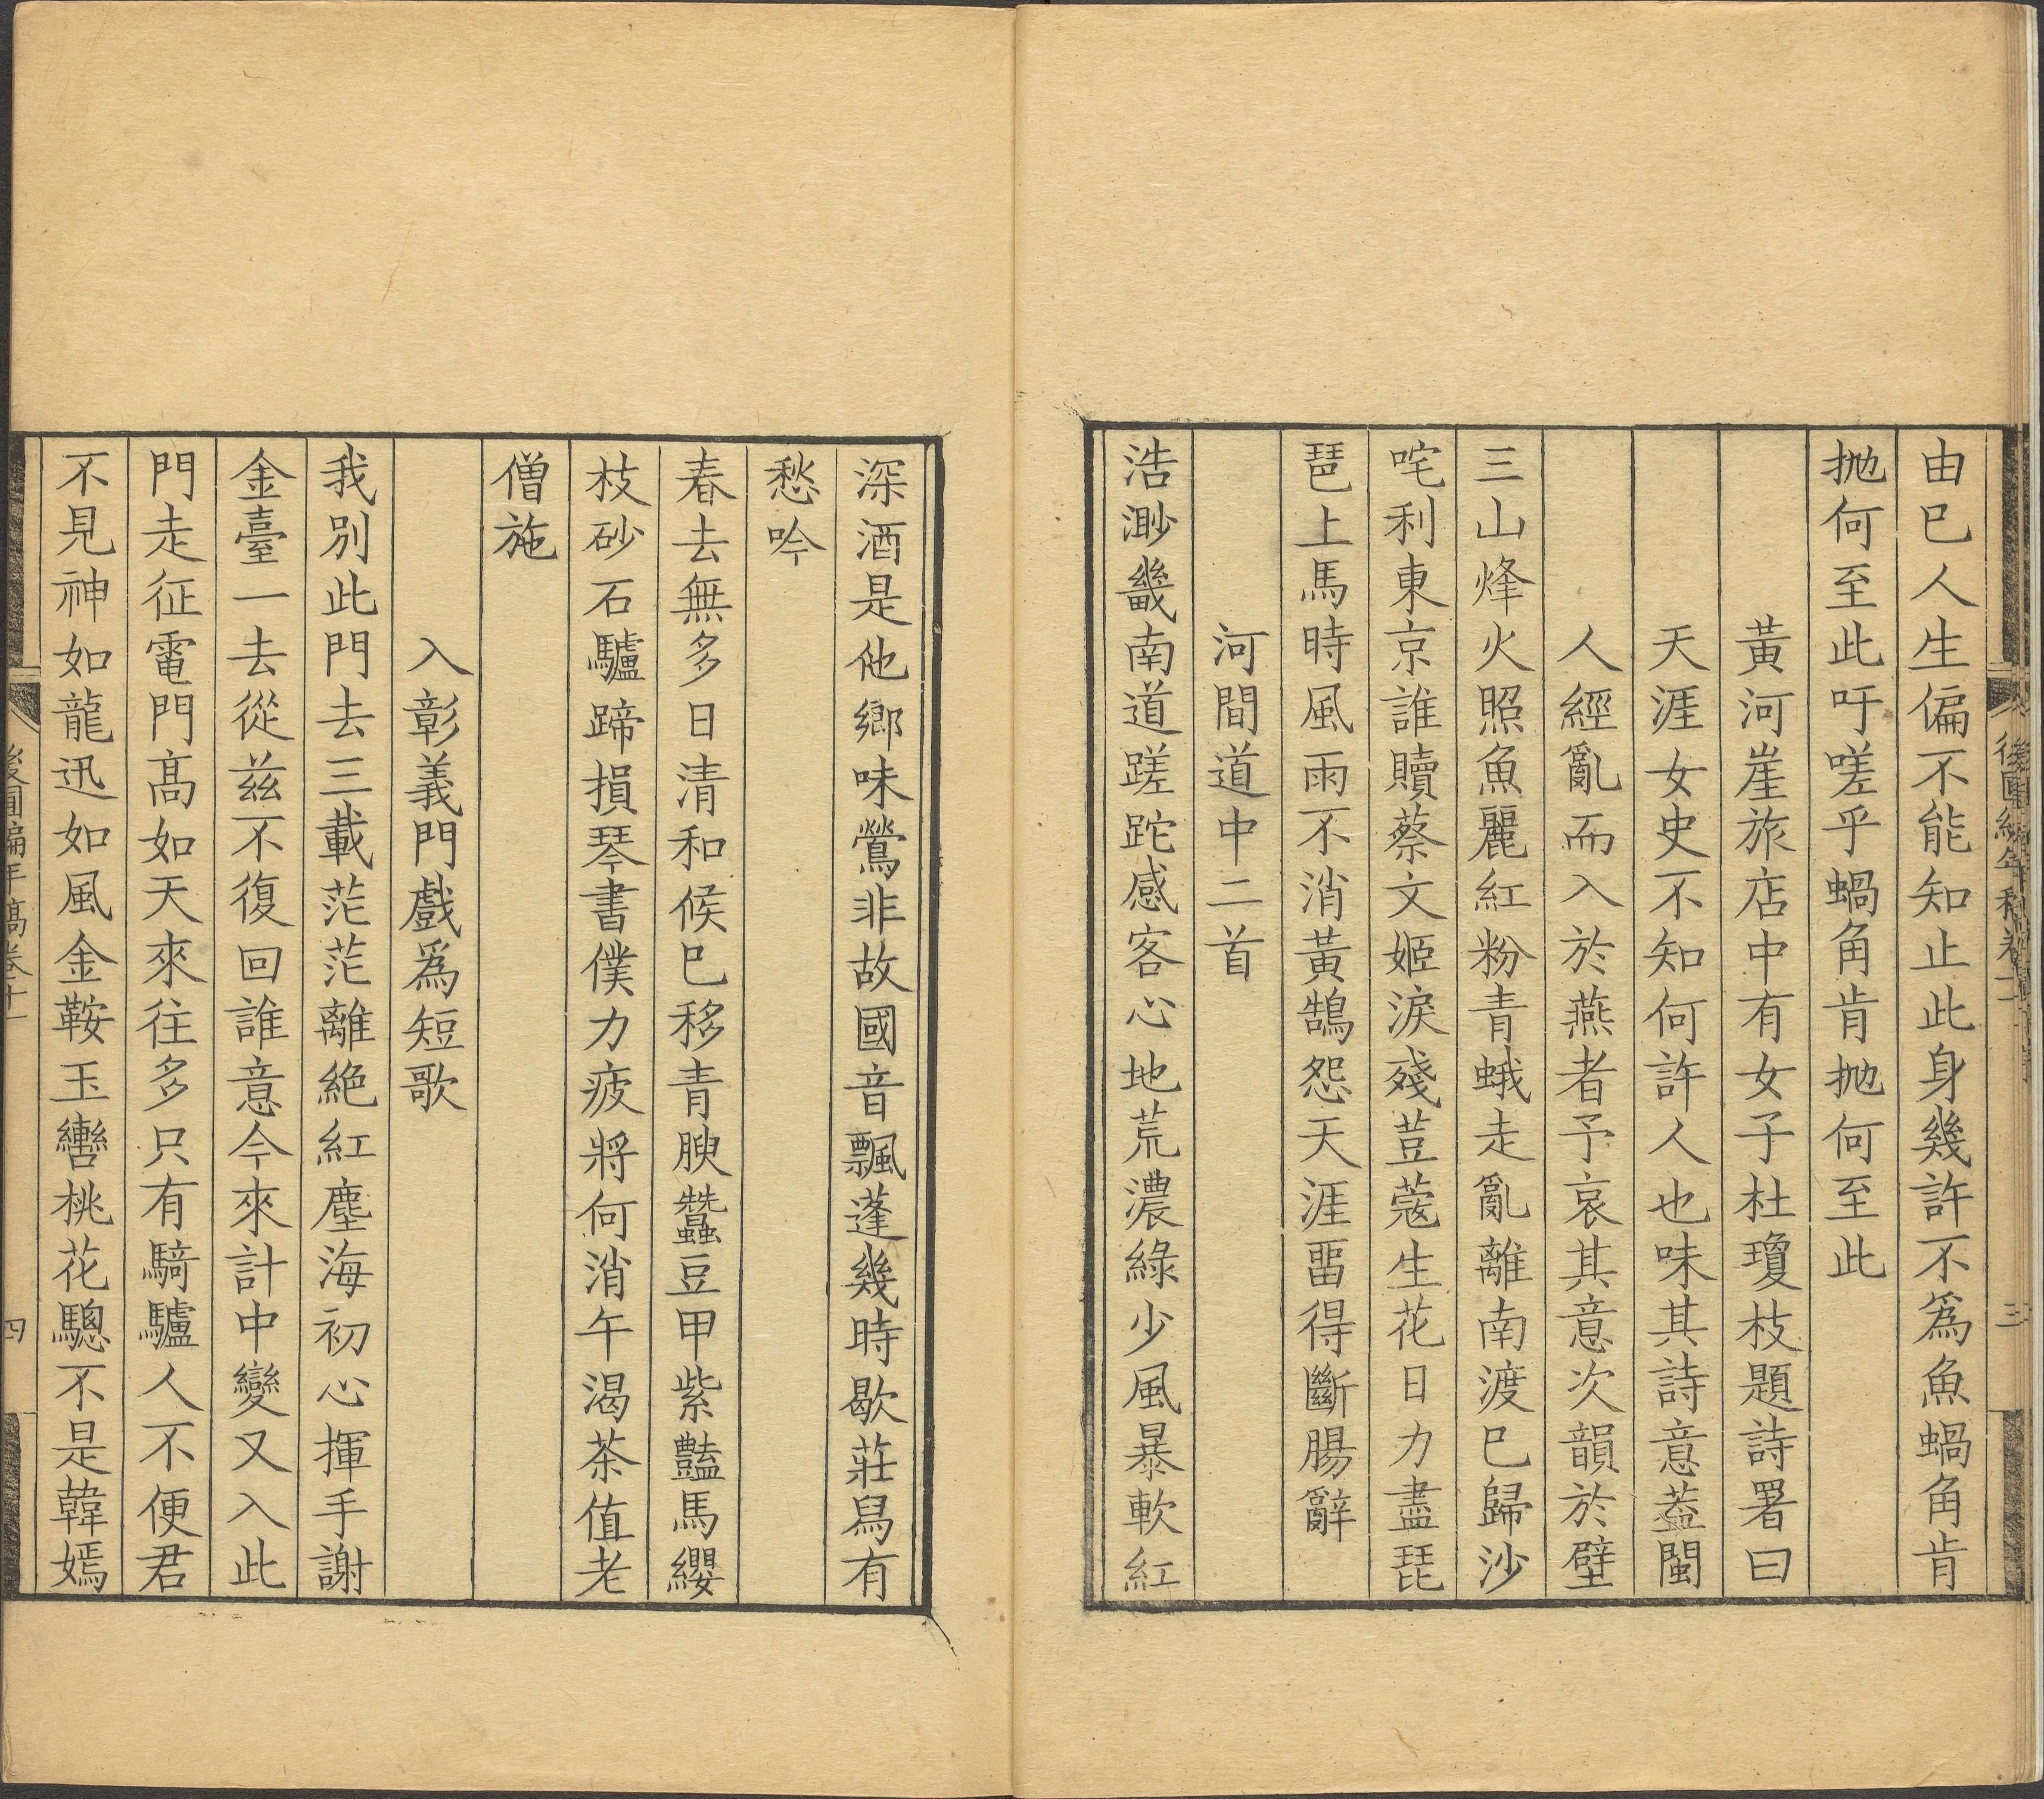 由巳人生偏不能知止此身幾許不為魚蝸角肯
拋何至此吁嗟乎蝸角肯拋何至此
黃河崖旅店中有女子杜瓊枝題詩署曰
天涯女史不知何許人也味其詩意葢閩
人經亂而入於燕者予哀其意次韻於壁
三山烽火照魚麗紅粉青蛾走亂離南渡巳歸沙
咤利東京誰贖蔡文姬淚殘荳蔻生花日力盡琵
琶上馬時風雨不消黃鵠怨天涯畱得斷腸辭
河間道中二首
浩渺畿南道蹉跎感客心地荒濃綠少風暴軟紅
深酒是他鄉味鶯非故國音飄蓬幾時歇莊舄有
愁吟
春去無多日清和候巳移青腴蠶豆甲紫豔馬纓
枝砂石驢蹄損琴書僕力疲將何消午渴茶值老
僧施
入彰義門戲為短歌
我別此門去三載茫茫離絶紅塵海初心揮手謝
金臺一去從兹不復回誰意今來計中變又入此
門走征電門髙如天來往多只有騎驢人不便君
不見神如龍迅如風金鞍玉轡桃花驄不是韓嫣
後圃編年稿卷十一
三
後圃編年稿卷十一
四